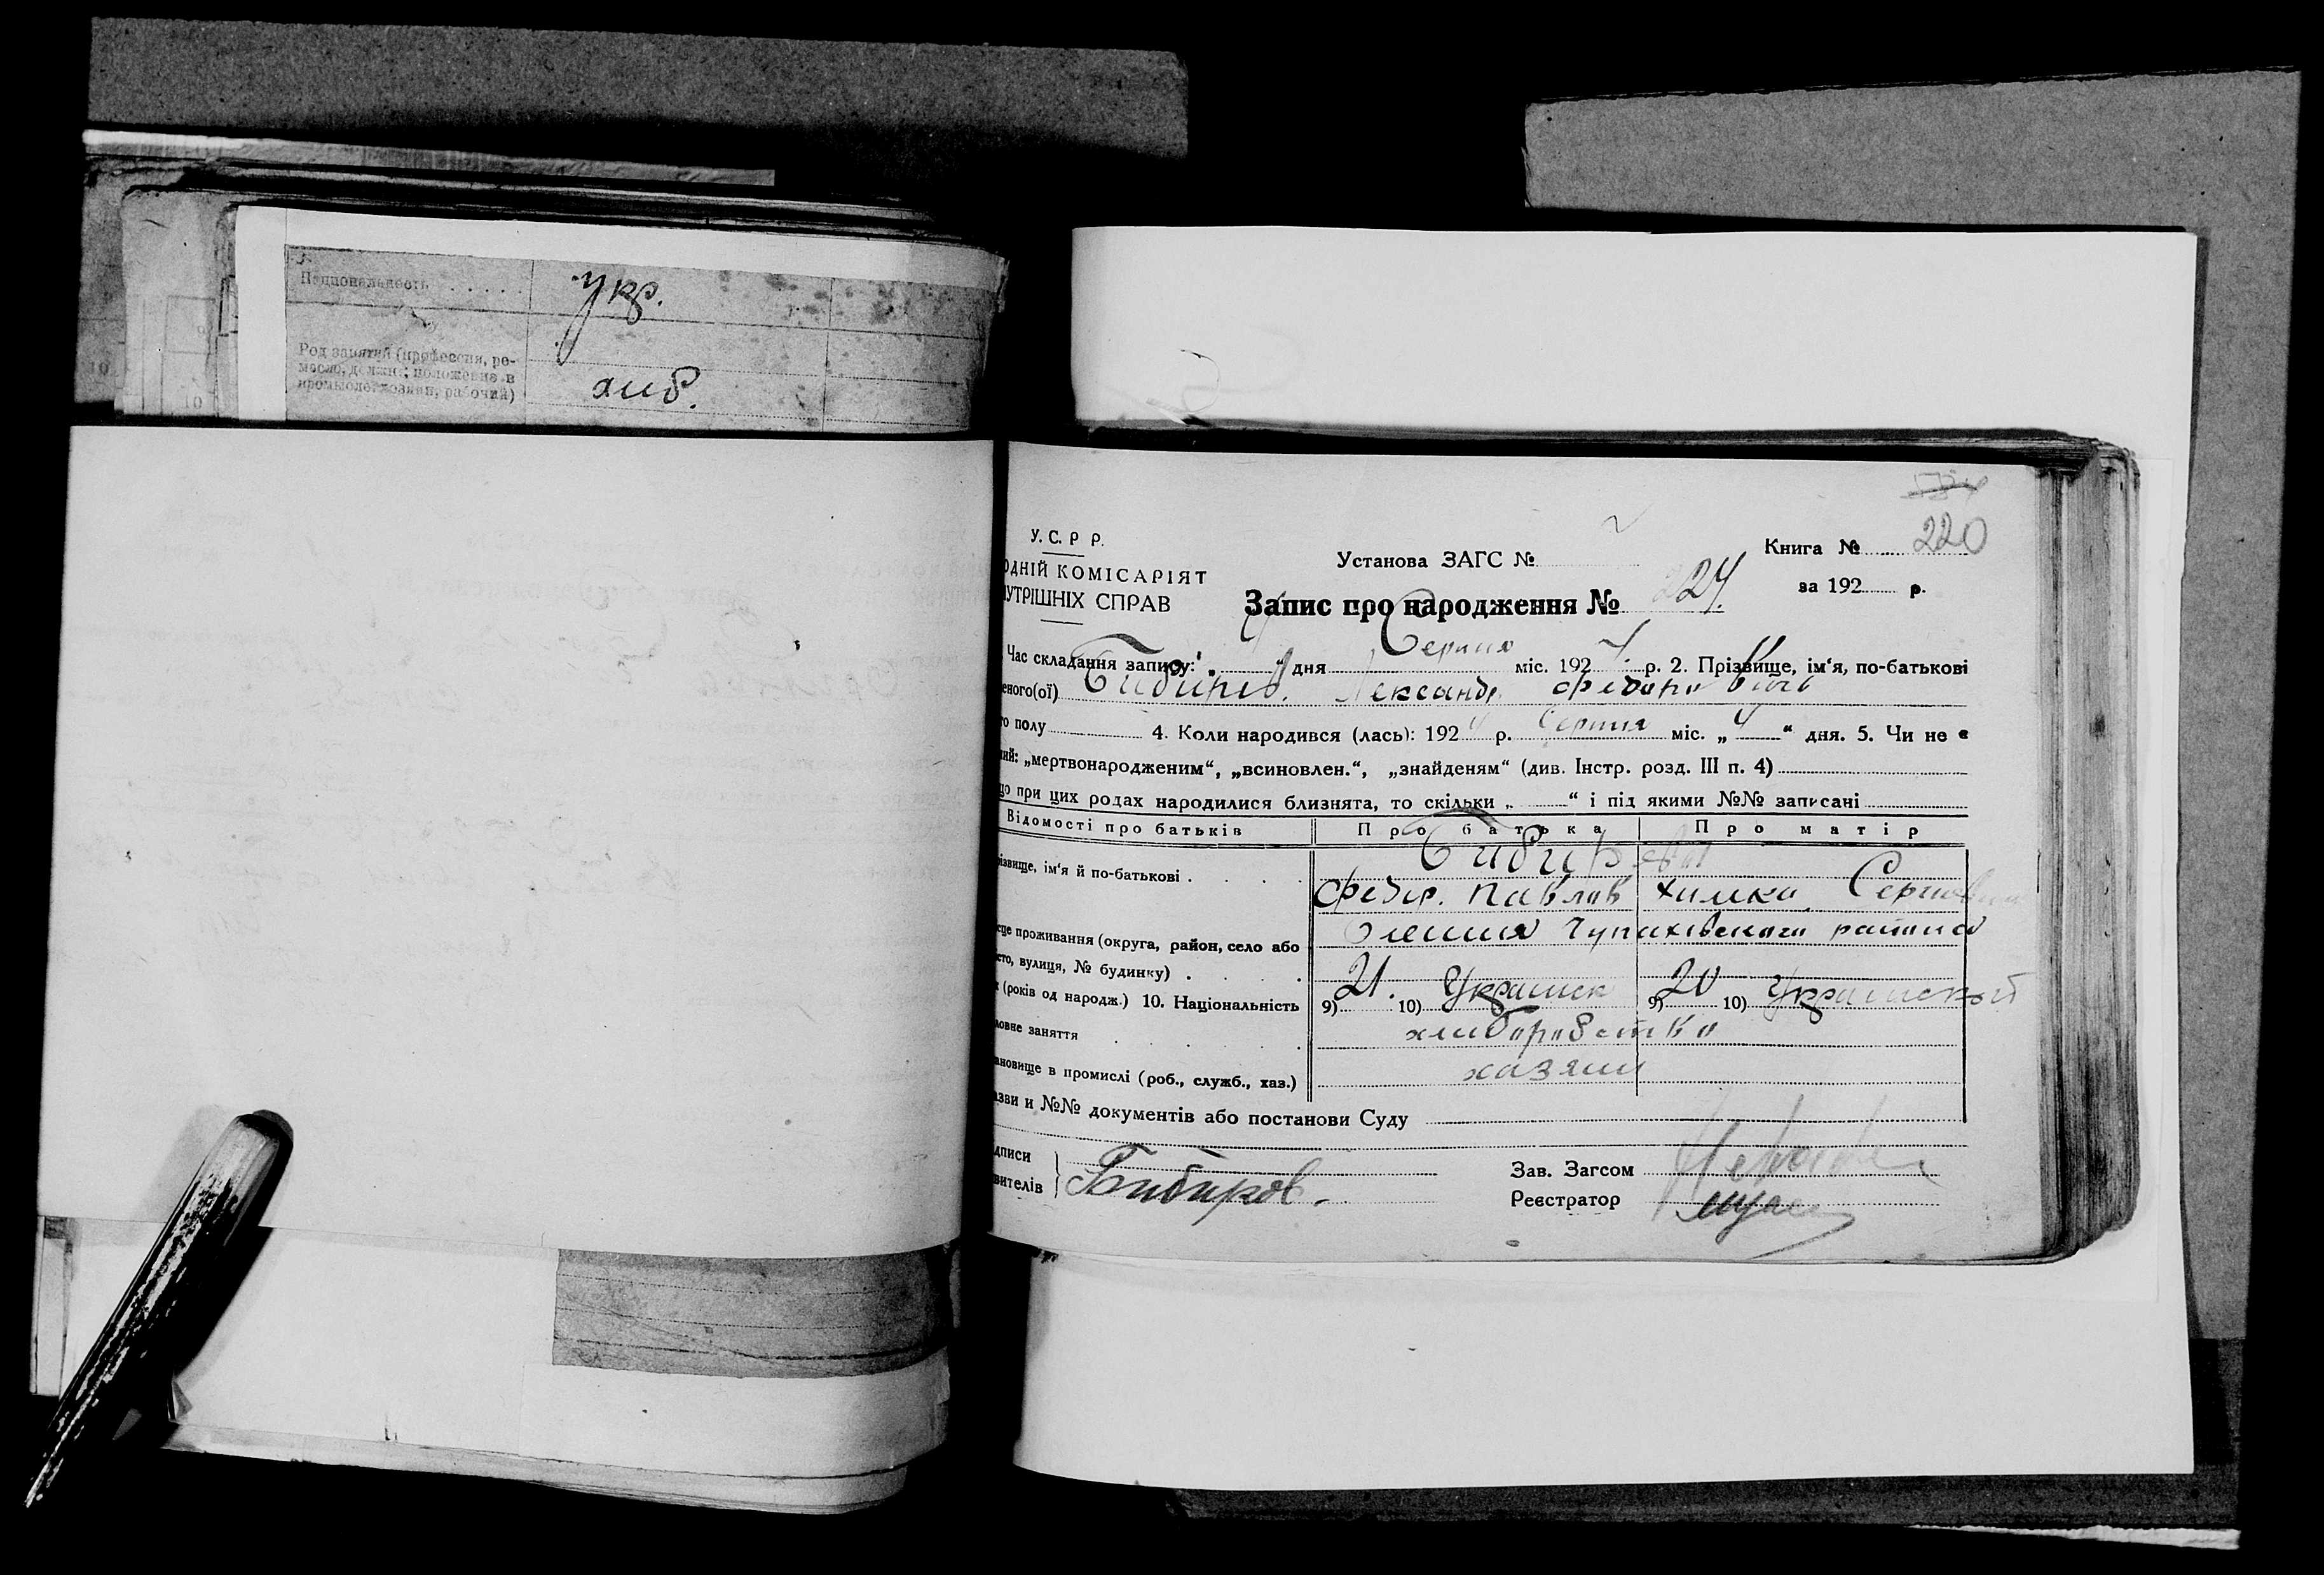 Национальность . . . . . укр.
Род занятий (профессия, ре-
месло, должн., положение в
промысле: хозяин, рабочий) хліб.
10
10
534
220
У. С. Р Р.
ОДНІЙ КОМІСАРІЯТ
НУТРІШНІХ СПРАВ
Установа ЗАГС №
Книга №
за 192 р.
Запис про народження № 224.
Час складання запису: „ “ дня Серпня міс. 1924 р. 2. Прізвище, ім‘я, по-батькові
еного(ої) Бибиков. Лександр Федорович
го полу 4. Коли народився (лась): 1924 р. Серпня міс. „ 4 “ дня. 5. Чи не є
ний: „мертвонародженим“, „всиновлен.“, „знайденям“ (див. Інстр. розд. III п. 4)
що при цих родах народилися близнята, то скільки „ “ і під якими №№ записані
Відомості про батьків Про батька Про матір
ізвище, ім‘я й по-батькові .
Федір. Павлов Химка
сце проживання (округа, район, село або Олешня Чупахівського района
сто, вулиця, № будинку) .
(років од народж.) 10. Національність 9) 21. 10) Украинск 9) 20 10)
ловне заняття хлиборобство
ановище в промислі (роб., служб., хаз.) хазяин
азви и №№ документів або постанови Суду
дписи
вителів Бибиков.
Зав. Загсом
Реєстратор